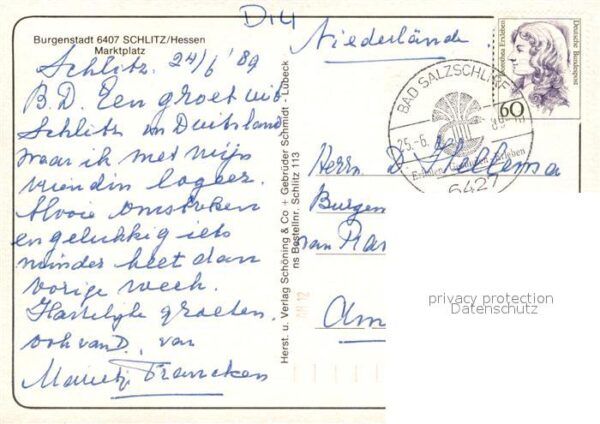 D14
Burgenstadt 6407 SCHLITZ/Hessen
Marktplatz
Schlitz. 24/6 '89
B.D. Een groet uit
Schlitz in Duitsland
waar ik met mijn
vriendin logeer.
Mooie omstreken
en gelukkig iets
minder heet dan
vorige week.
Hartelijke groeten.
ook van D. van
Francken
Herst. u. Verlag Schöning & Co + Gebrüder Schmidt · Lübeck
ns Bestellnr. Schlitz 113
Niederlände
BAD SALZSCHLIRF
25.-6.
Erleben
6427
Dorothea Erxleben
Deutsche Bundespost
60
Herrn D.
Burgem
van
Am
privacy protection
Datenschutz